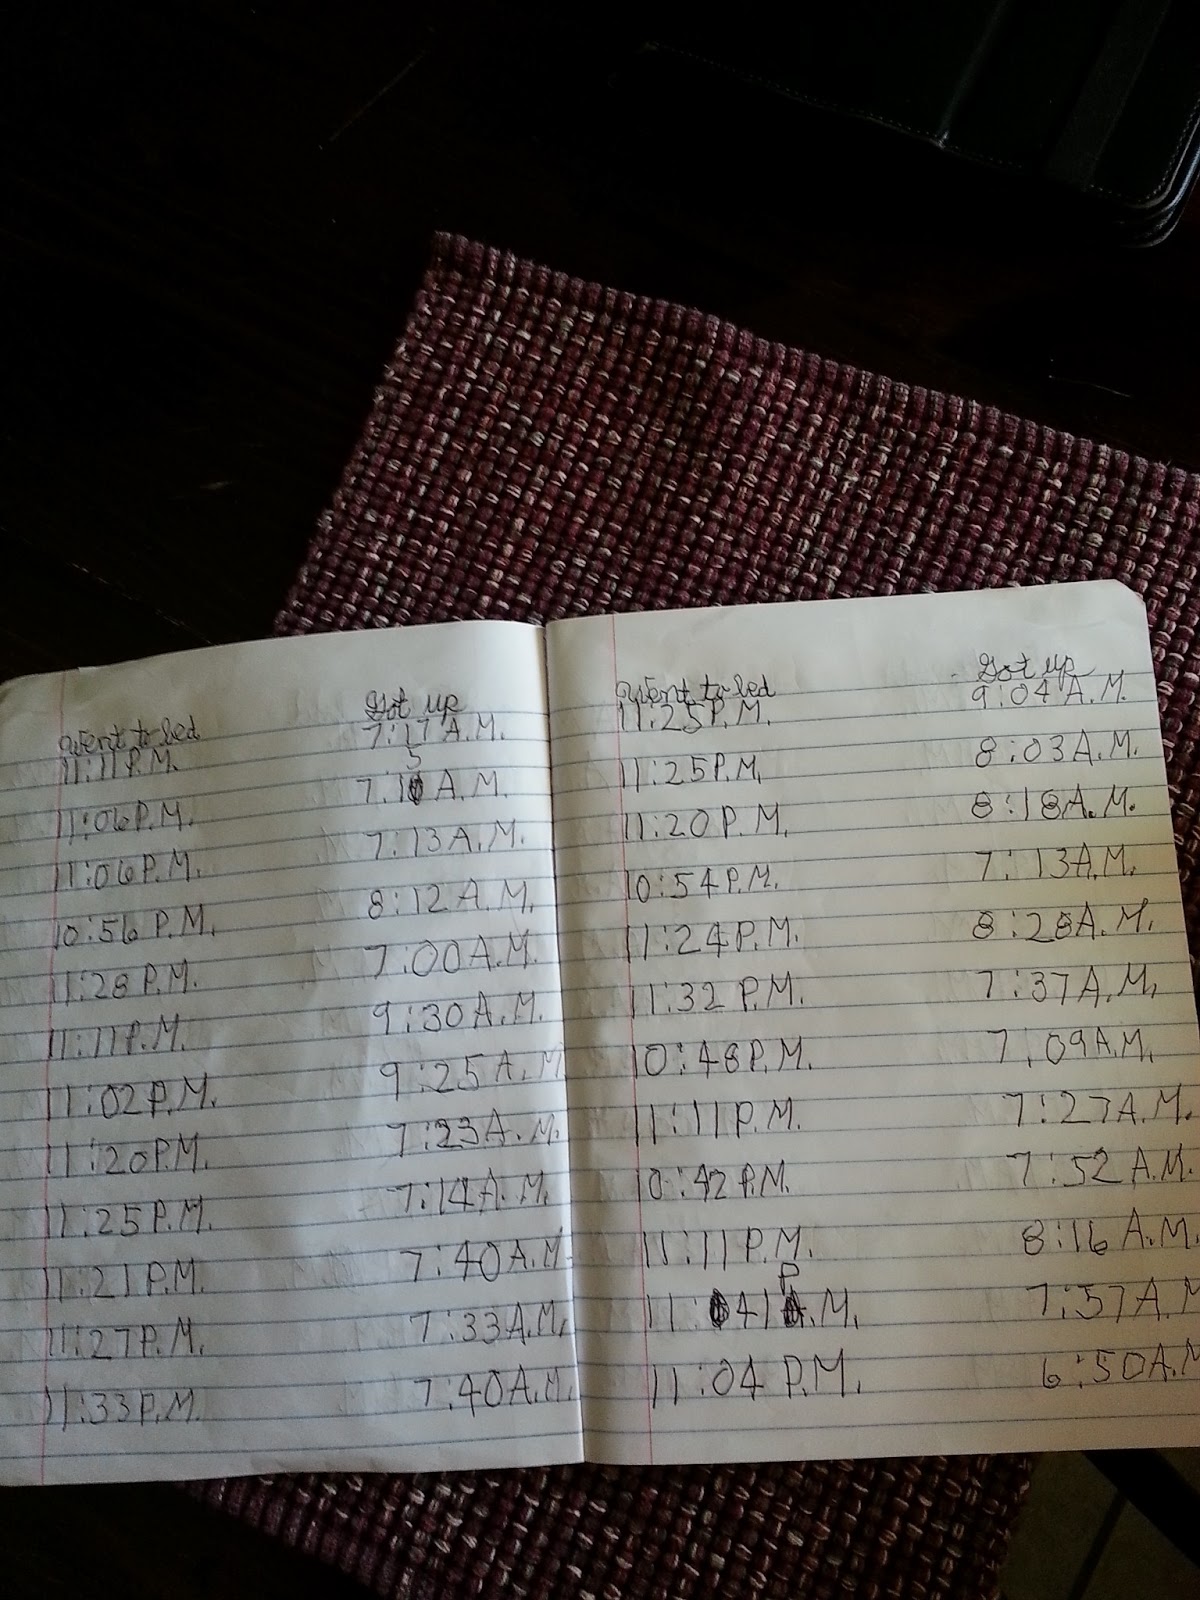 Went to bed Got up
11:11 P.M. 7:17 A.M.
11:06 P.M. 7:15 A.M.
11:06 P.M. 7:13 A.M.
10:56 P.M. 8:12 A.M.
11:28 P.M. 7:00 A.M.
11:11 P.M. 9:30 A.M.
11:02 P.M. 9:25 A.M.
11:20 P.M. 7:23 A.M.
11:25 P.M. 7:14 A.M.
11:21 P.M. 7:40 A.M.
11:27 P.M. 7:33 A.M.
11:33 P.M. 7:40 A.M.
Went to bed Got up
11:25 P.M. 9:04 A.M.
11:25 P.M. 8:03 A.M.
11:20 P.M. 8:18 A.M.
10:54 P.M. 7:13 A.M.
11:24 P.M. 8:28 A.M.
11:32 P.M. 7:37 A.M.
10:48 P.M. 7:09 A.M.
11:11 P.M. 7:27 A.M.
10:42 P.M. 7:52 A.M.
11:11 P.M. 8:16 A.M.
11:41 P.M. 7:57 A.M
11:04 P.M. 6:50 A.M